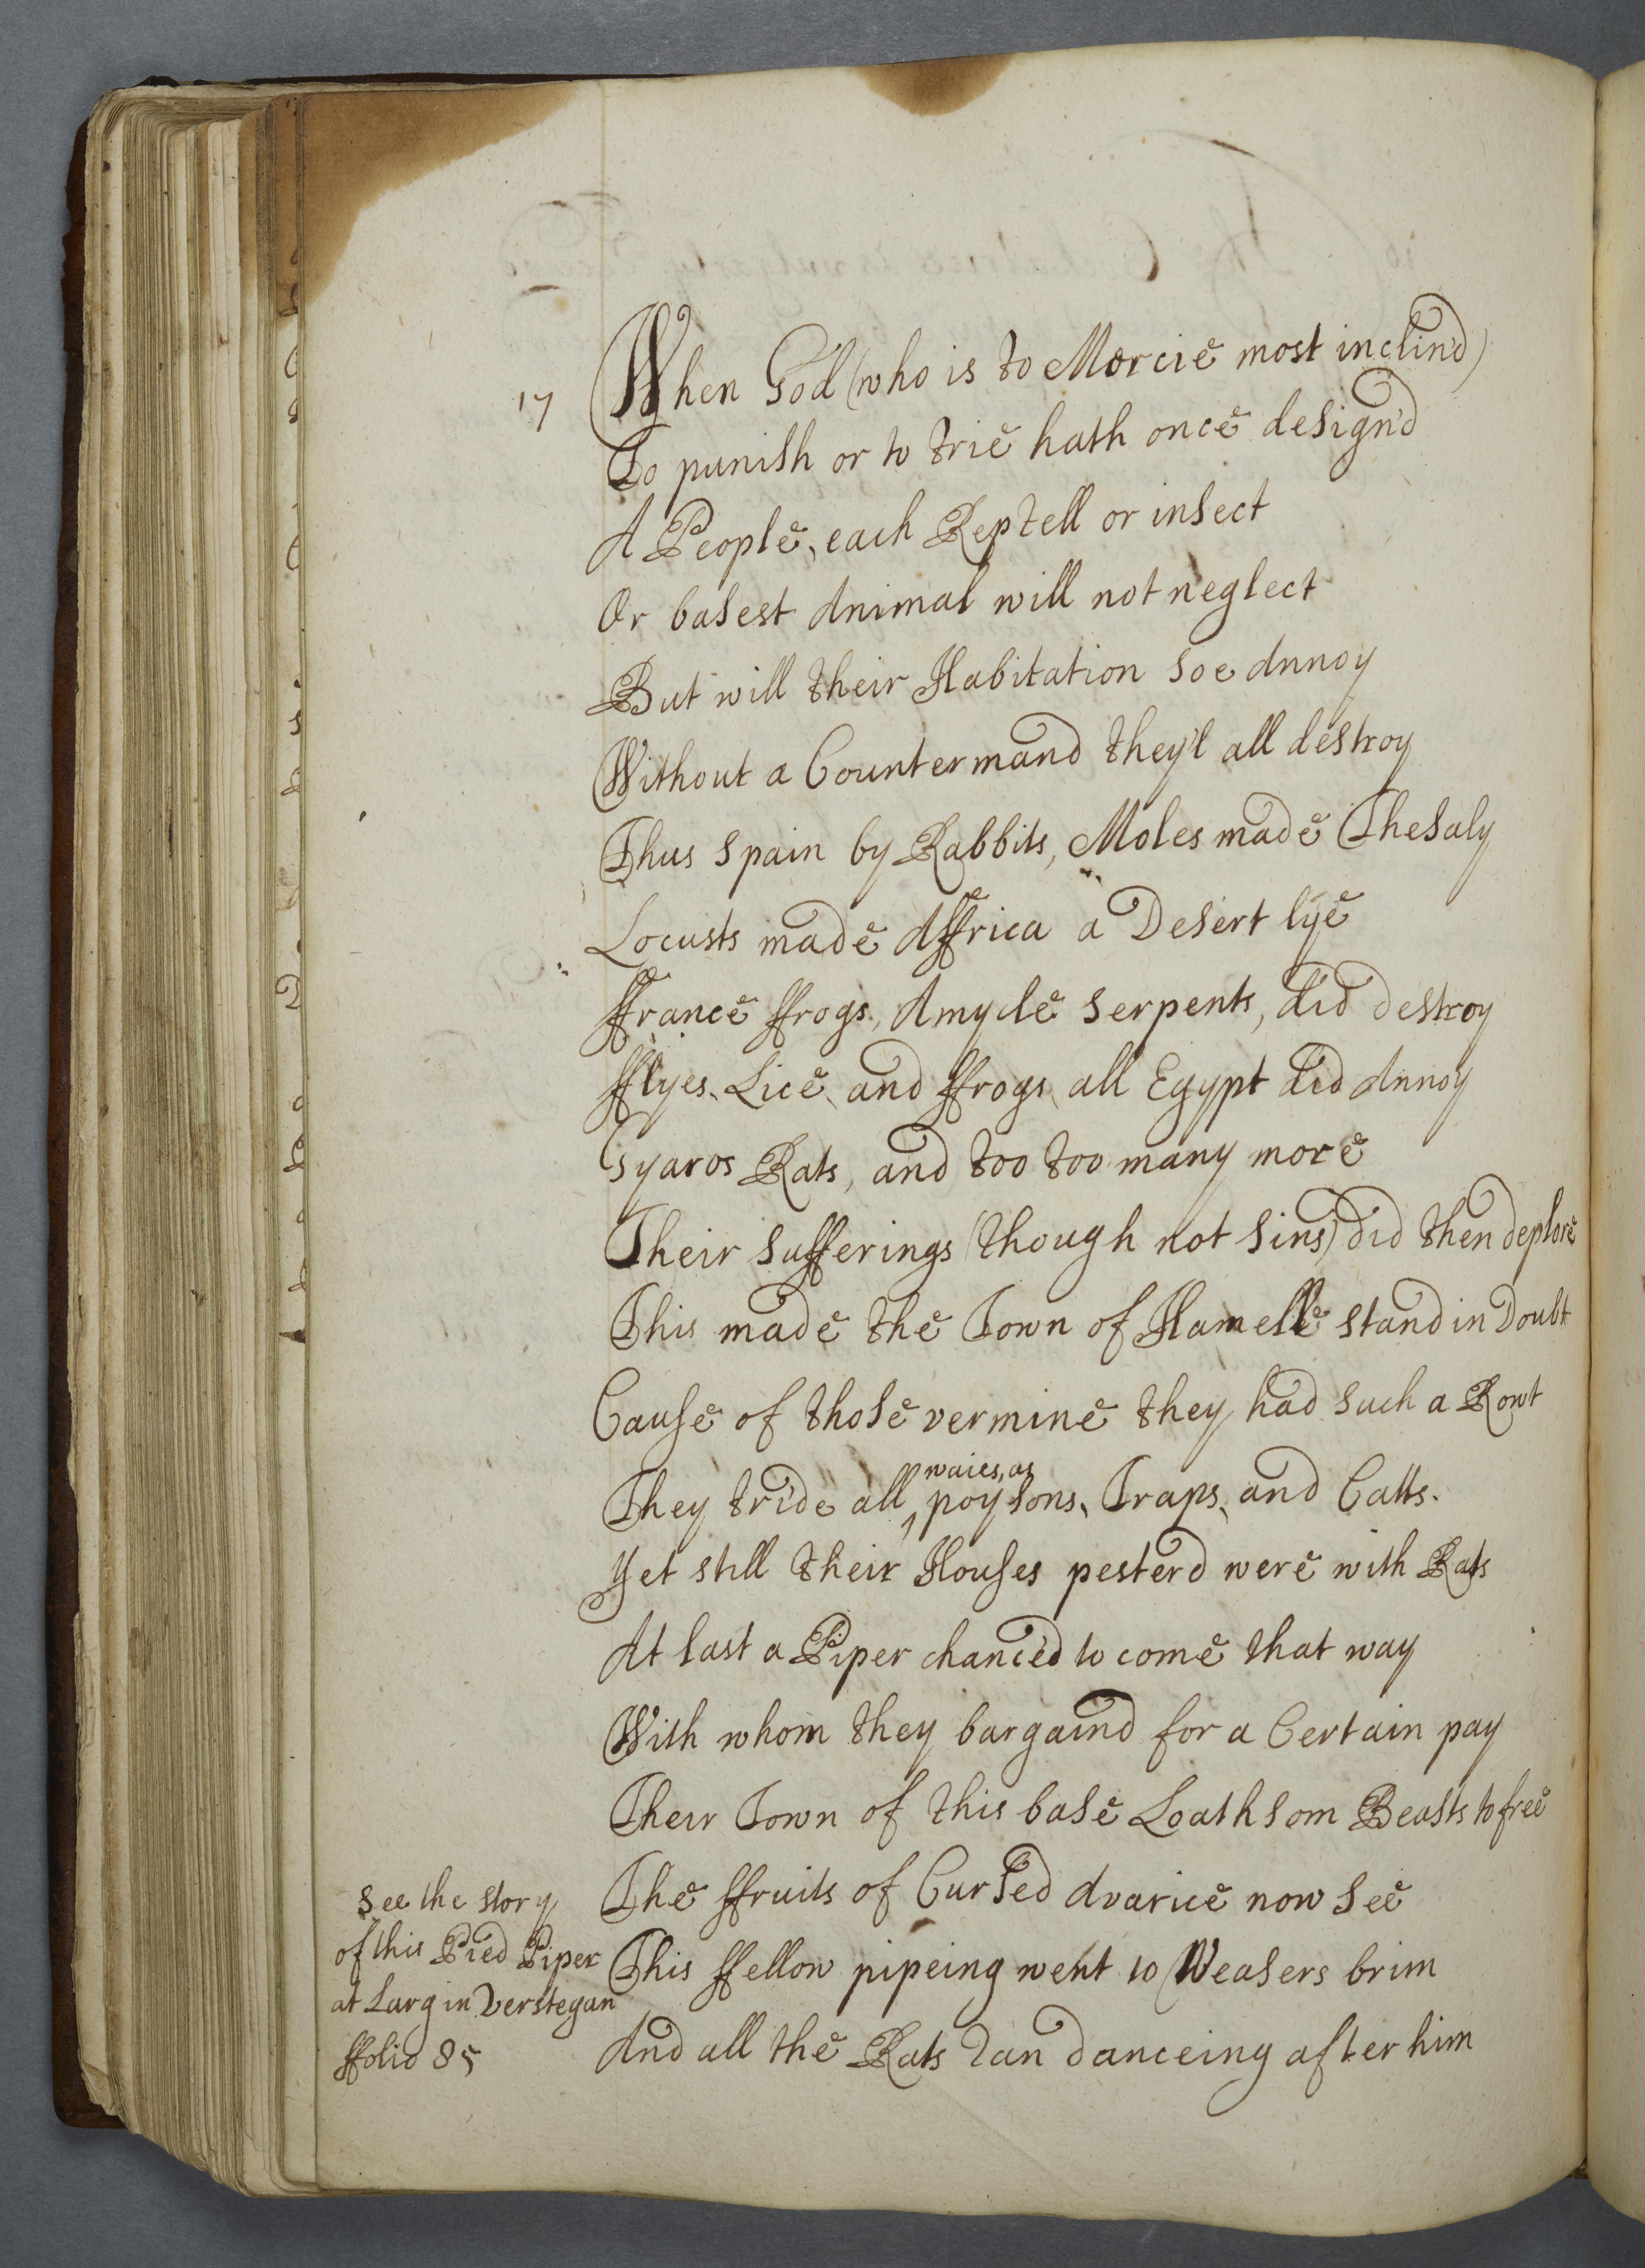 17
When God (who is to Mercie most inclin'd)
To punish or to trie hath once design'd
A People, each Reptell or insect
Or basest Animal will not neglect
But will their Habitation soe Annoy
Without a Countermand they'l all destroy
Thus Spain by Rabbits, Moles made Thesaly
Locusts made Affrica a Desert lye
ffrance ffrogs, Amycle Serpents, did destroy
fflyes, Lice, and ffrogs, all Egypt did Annoy
Gyaros Rats, and too too many more
Their Sufferings (though not Sins) did then deplore
This made the Town of Hamelle stand in Doubt
Cause of those vermine they had such a Rowt
They tride all waies, as poysons, Traps, and Catts.
Yet still their Houses pesterd were with Rats
At last a Piper chanc'ed to come that way
With whom they bargaind for a Certain pay
Their Town of this base Loathsom Beasts to free
The ffruits of Cursed Avarice now see
This ffellow pipeing went to Weasers brim
And all the Rats Ran danceing after him
See the story
of this Pied Piper
at Larg in Verstegan
ffolio 85